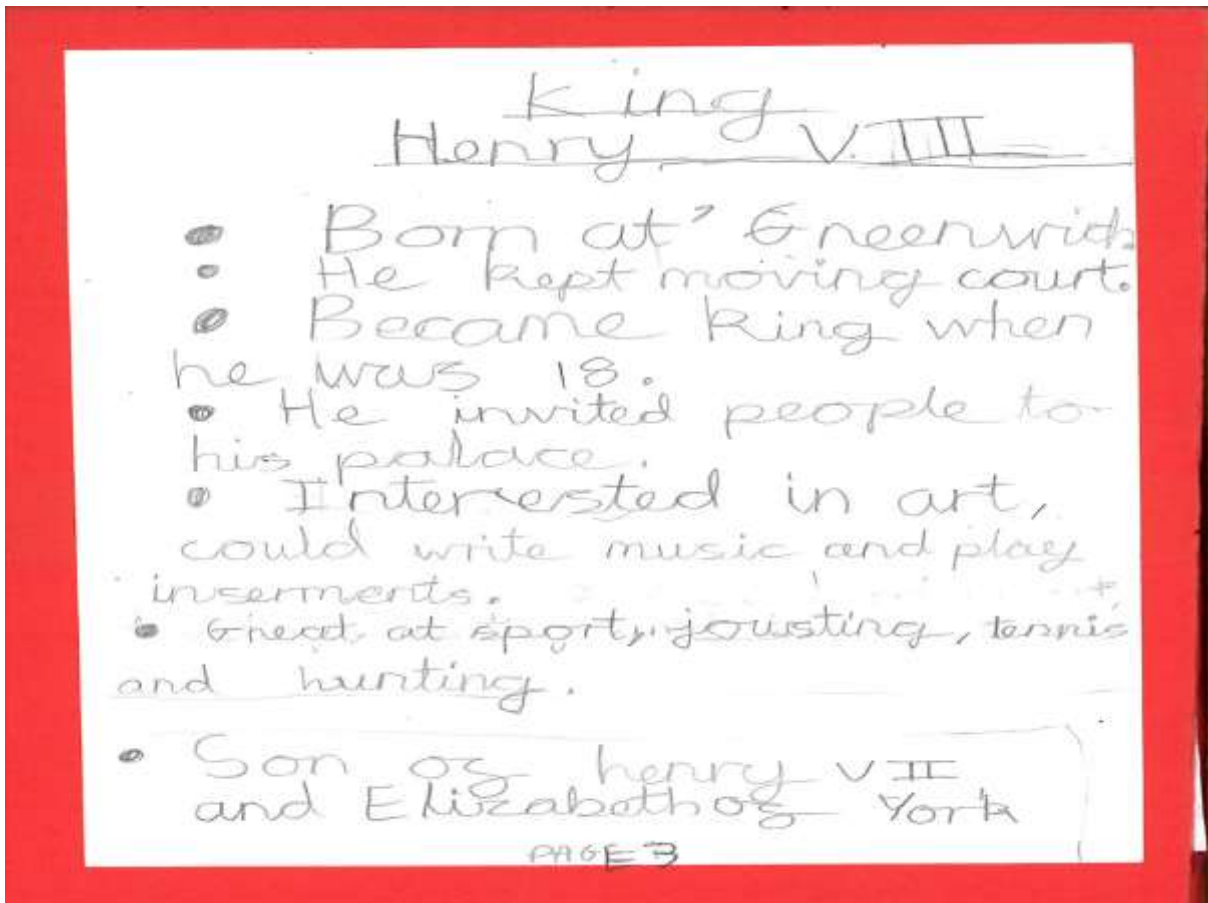 King
Henry VIII
• Born at Greenwich
• He kept moving court.
• Became King when
he was 18.
• He invited people to
his palace.
• Interested in art,
could write music and play
inserments.
• Great at sport, jousting, tennis
and hunting.
• Son of henry VII
and Elizabeth of York
PAGE 3